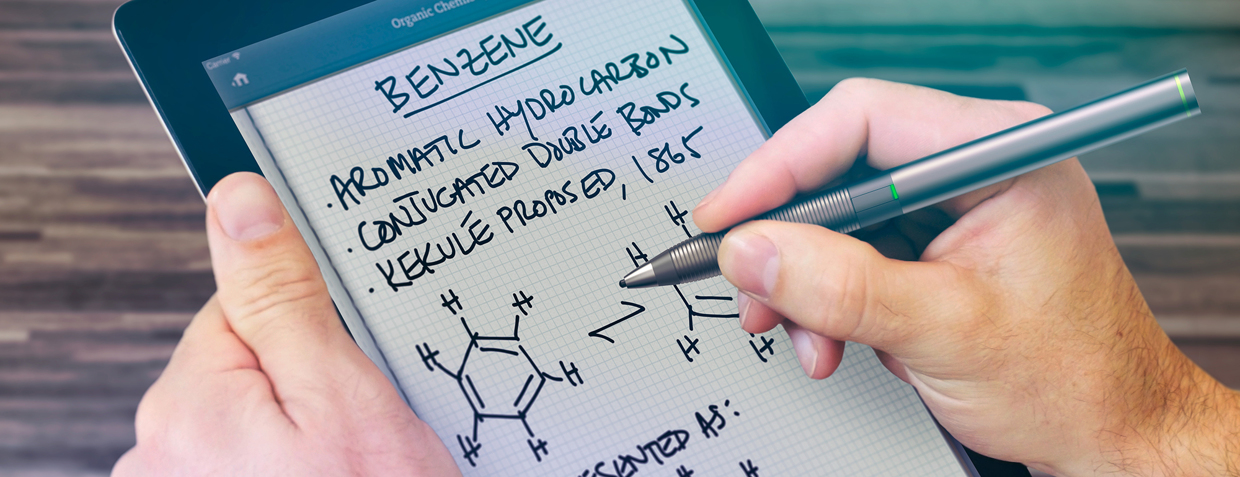 Carrier
Organic
BENZENE
· AROMATIC HYDROCARBON
· CONJUGATED DOUBLE BONDS
· KEKULÉ PROPOSED, 1865
H
H
H H
H
H
H H
H H
AS:
H H